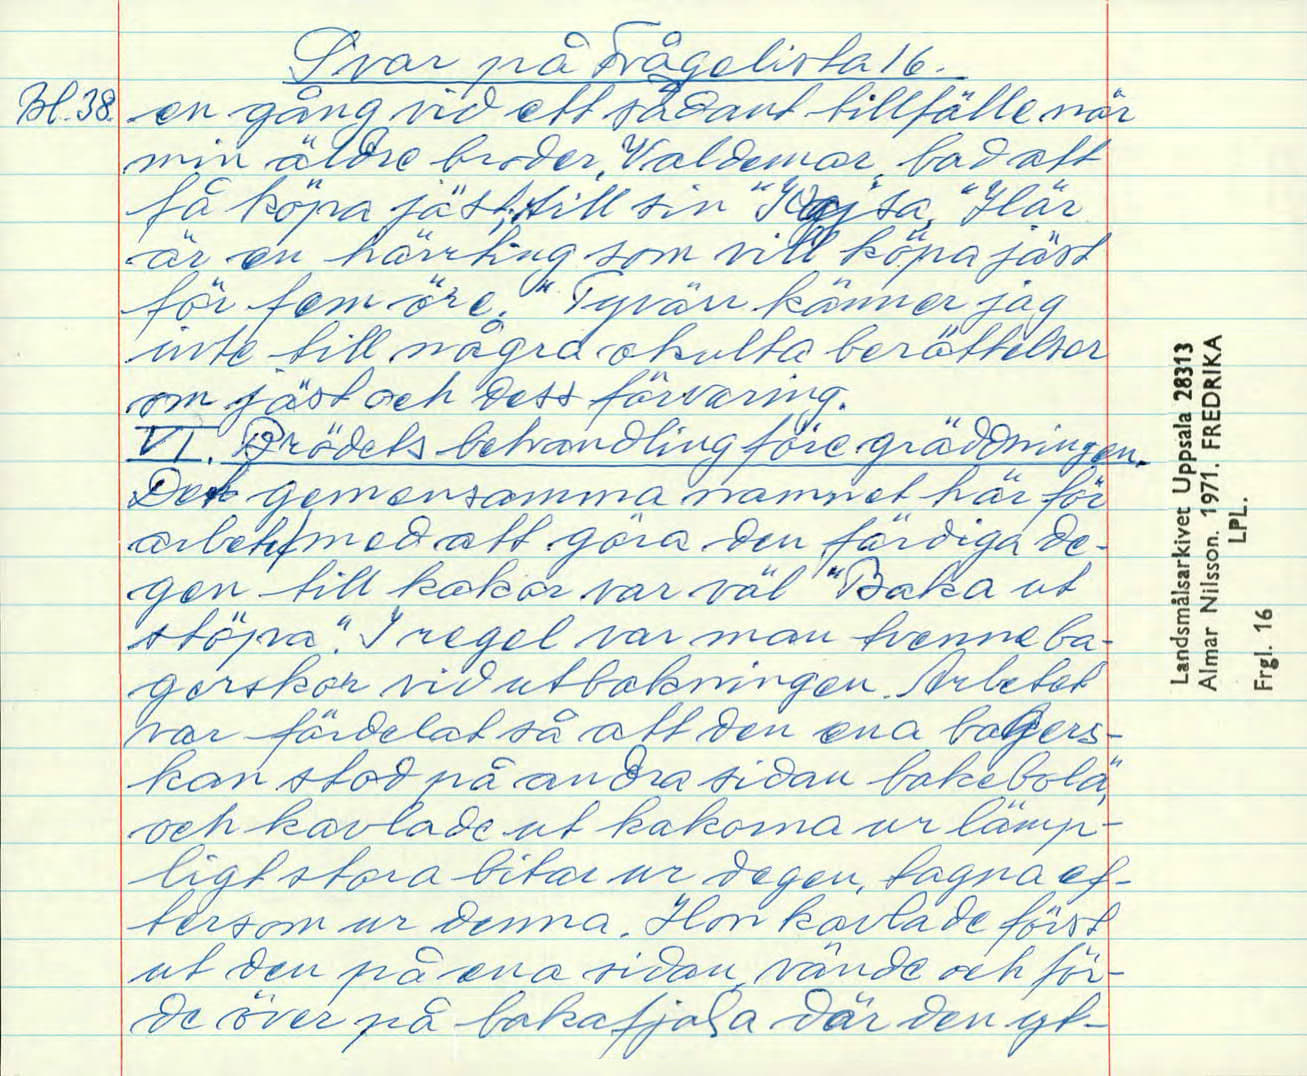 Svar på Frågelista 16.
Bl. 38. en gång vid ett sådant tillfälle när
min äldre broder, Valdemar, bad att
få köpa jäst, till sin "Här
är en härrting som vill köpa jäst
för fem öre." Tyvärr känner jag
inte till några okulta berättelser
om jäst och dess förvaring.
VI. Brödets behandling före gräddningen.
Det gemensamma namnet här för
arbetet med att göra den färdiga de-
gen till kakor var väl "Baka ut
stöpa". I regel var man tvenne ba-
gerskor vid utbakningen. Arbetet
var fördelat så att den ena bagers-
kan stod på andra sidan bakebola,"
och kavlade ut kakorna ur lämp-
ligt stora bitar ur degen, tagna ef-
tersom ur denna. Hon kavlade först
ut den på ena sidan, vände och för-
de över på bakafjola där den yt-
Landsmålsarkivet Uppsala 28313
Almar Nilsson. 1971. FREDRIKA
LPL.
Frgl. 16